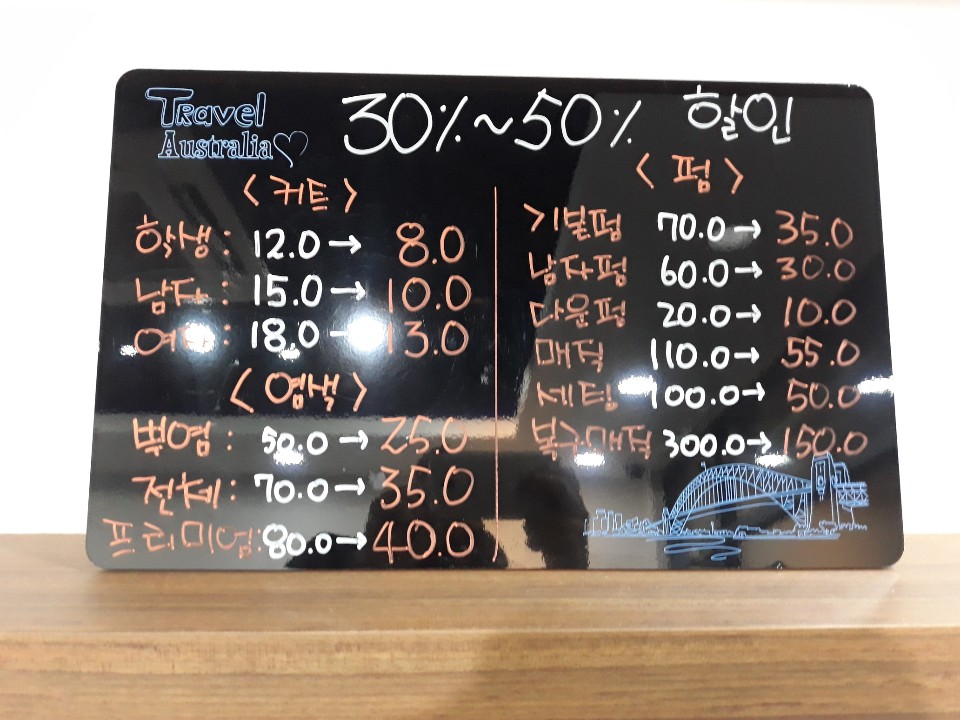 Travel
Australia
30%~50% 할인
<커트>
학생: 12.0→ 8.0
남자: 15.0→ 10.0
여자: 18.0→ 13.0
<염색>
뿌염: 50.0→ 25.0
전체: 70.0→ 35.0
프리미엄: 80.0→ 40.0
<펌>
기본펌 70.0→ 35.0
남자펌 60.0→ 30.0
다운펌 20.0→ 10.0
매직 110.0→ 55.0
세팅 100.0→ 50.0
복구매직 300.0→ 150.0